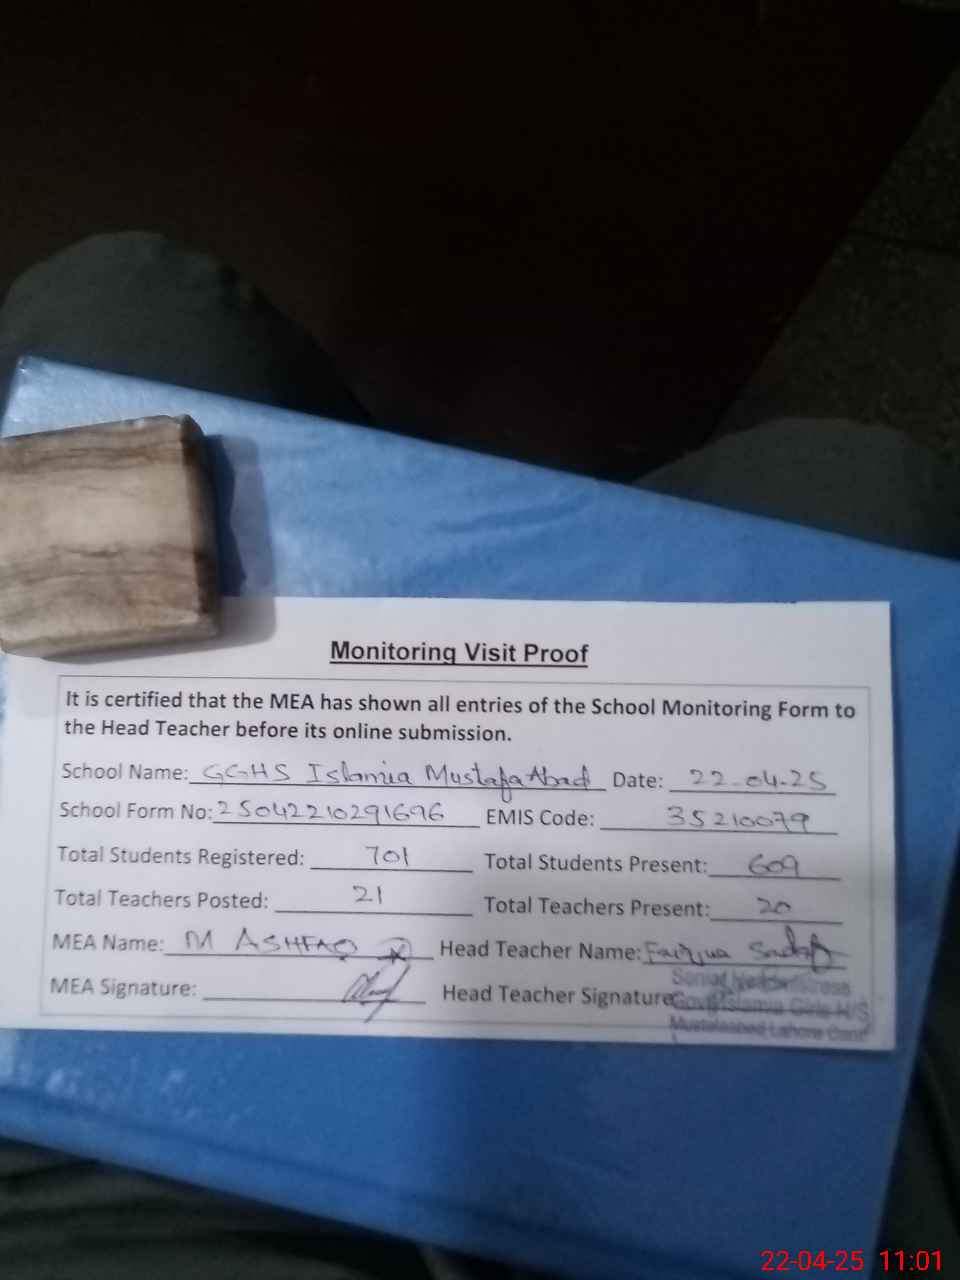 Monitoring Visit Proof
It is certified that the MEA has shown all entries of the School Monitoring Form to
the Head Teacher before its online submission.
School Name: GGHS Islamia Mustafa Abad Date: 22-04-25
School Form No: 25042210291696 EMIS Code: 35210079
Total Students Registered: 701 Total Students Present: 609
Total Teachers Posted: 21 Total Teachers Present: 20
MEA Name: M ASHFAQ Head Teacher Name: Sadaf
MEA Signature: Head Teacher Signature
Senior Headmistress
Govt Islamia Girls H/S
Mustafaabad Lahore Cantt
22-04-25 11:01